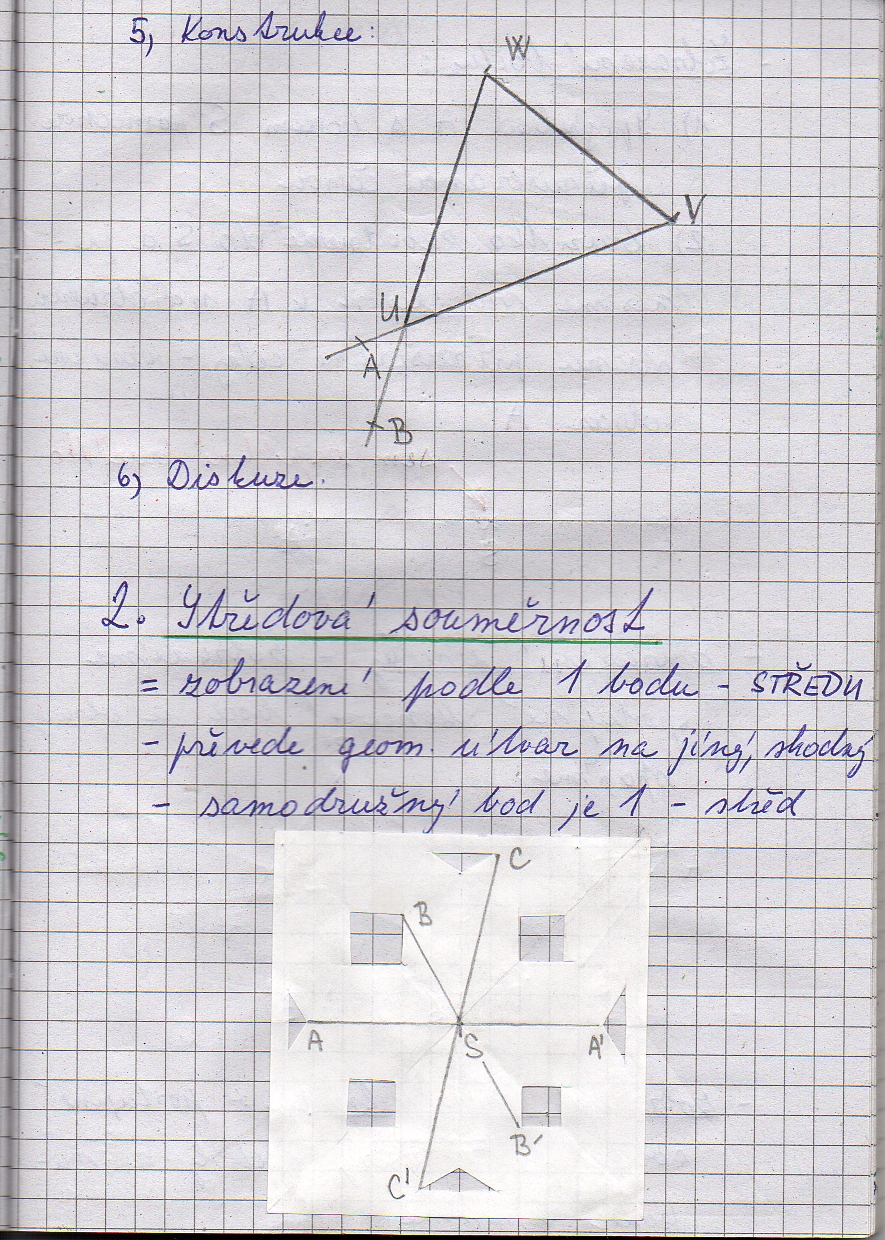 5) Konstrukce:
W
V
U
A
B
6) Diskuze.
2. Středová souměrnost
= zobrazení podle 1 bodu - STŘEDU
- převede geom. útvar na jiný, shodný
- samodružný bod je 1 - střed
C
B
A
S
A'
B'
C'